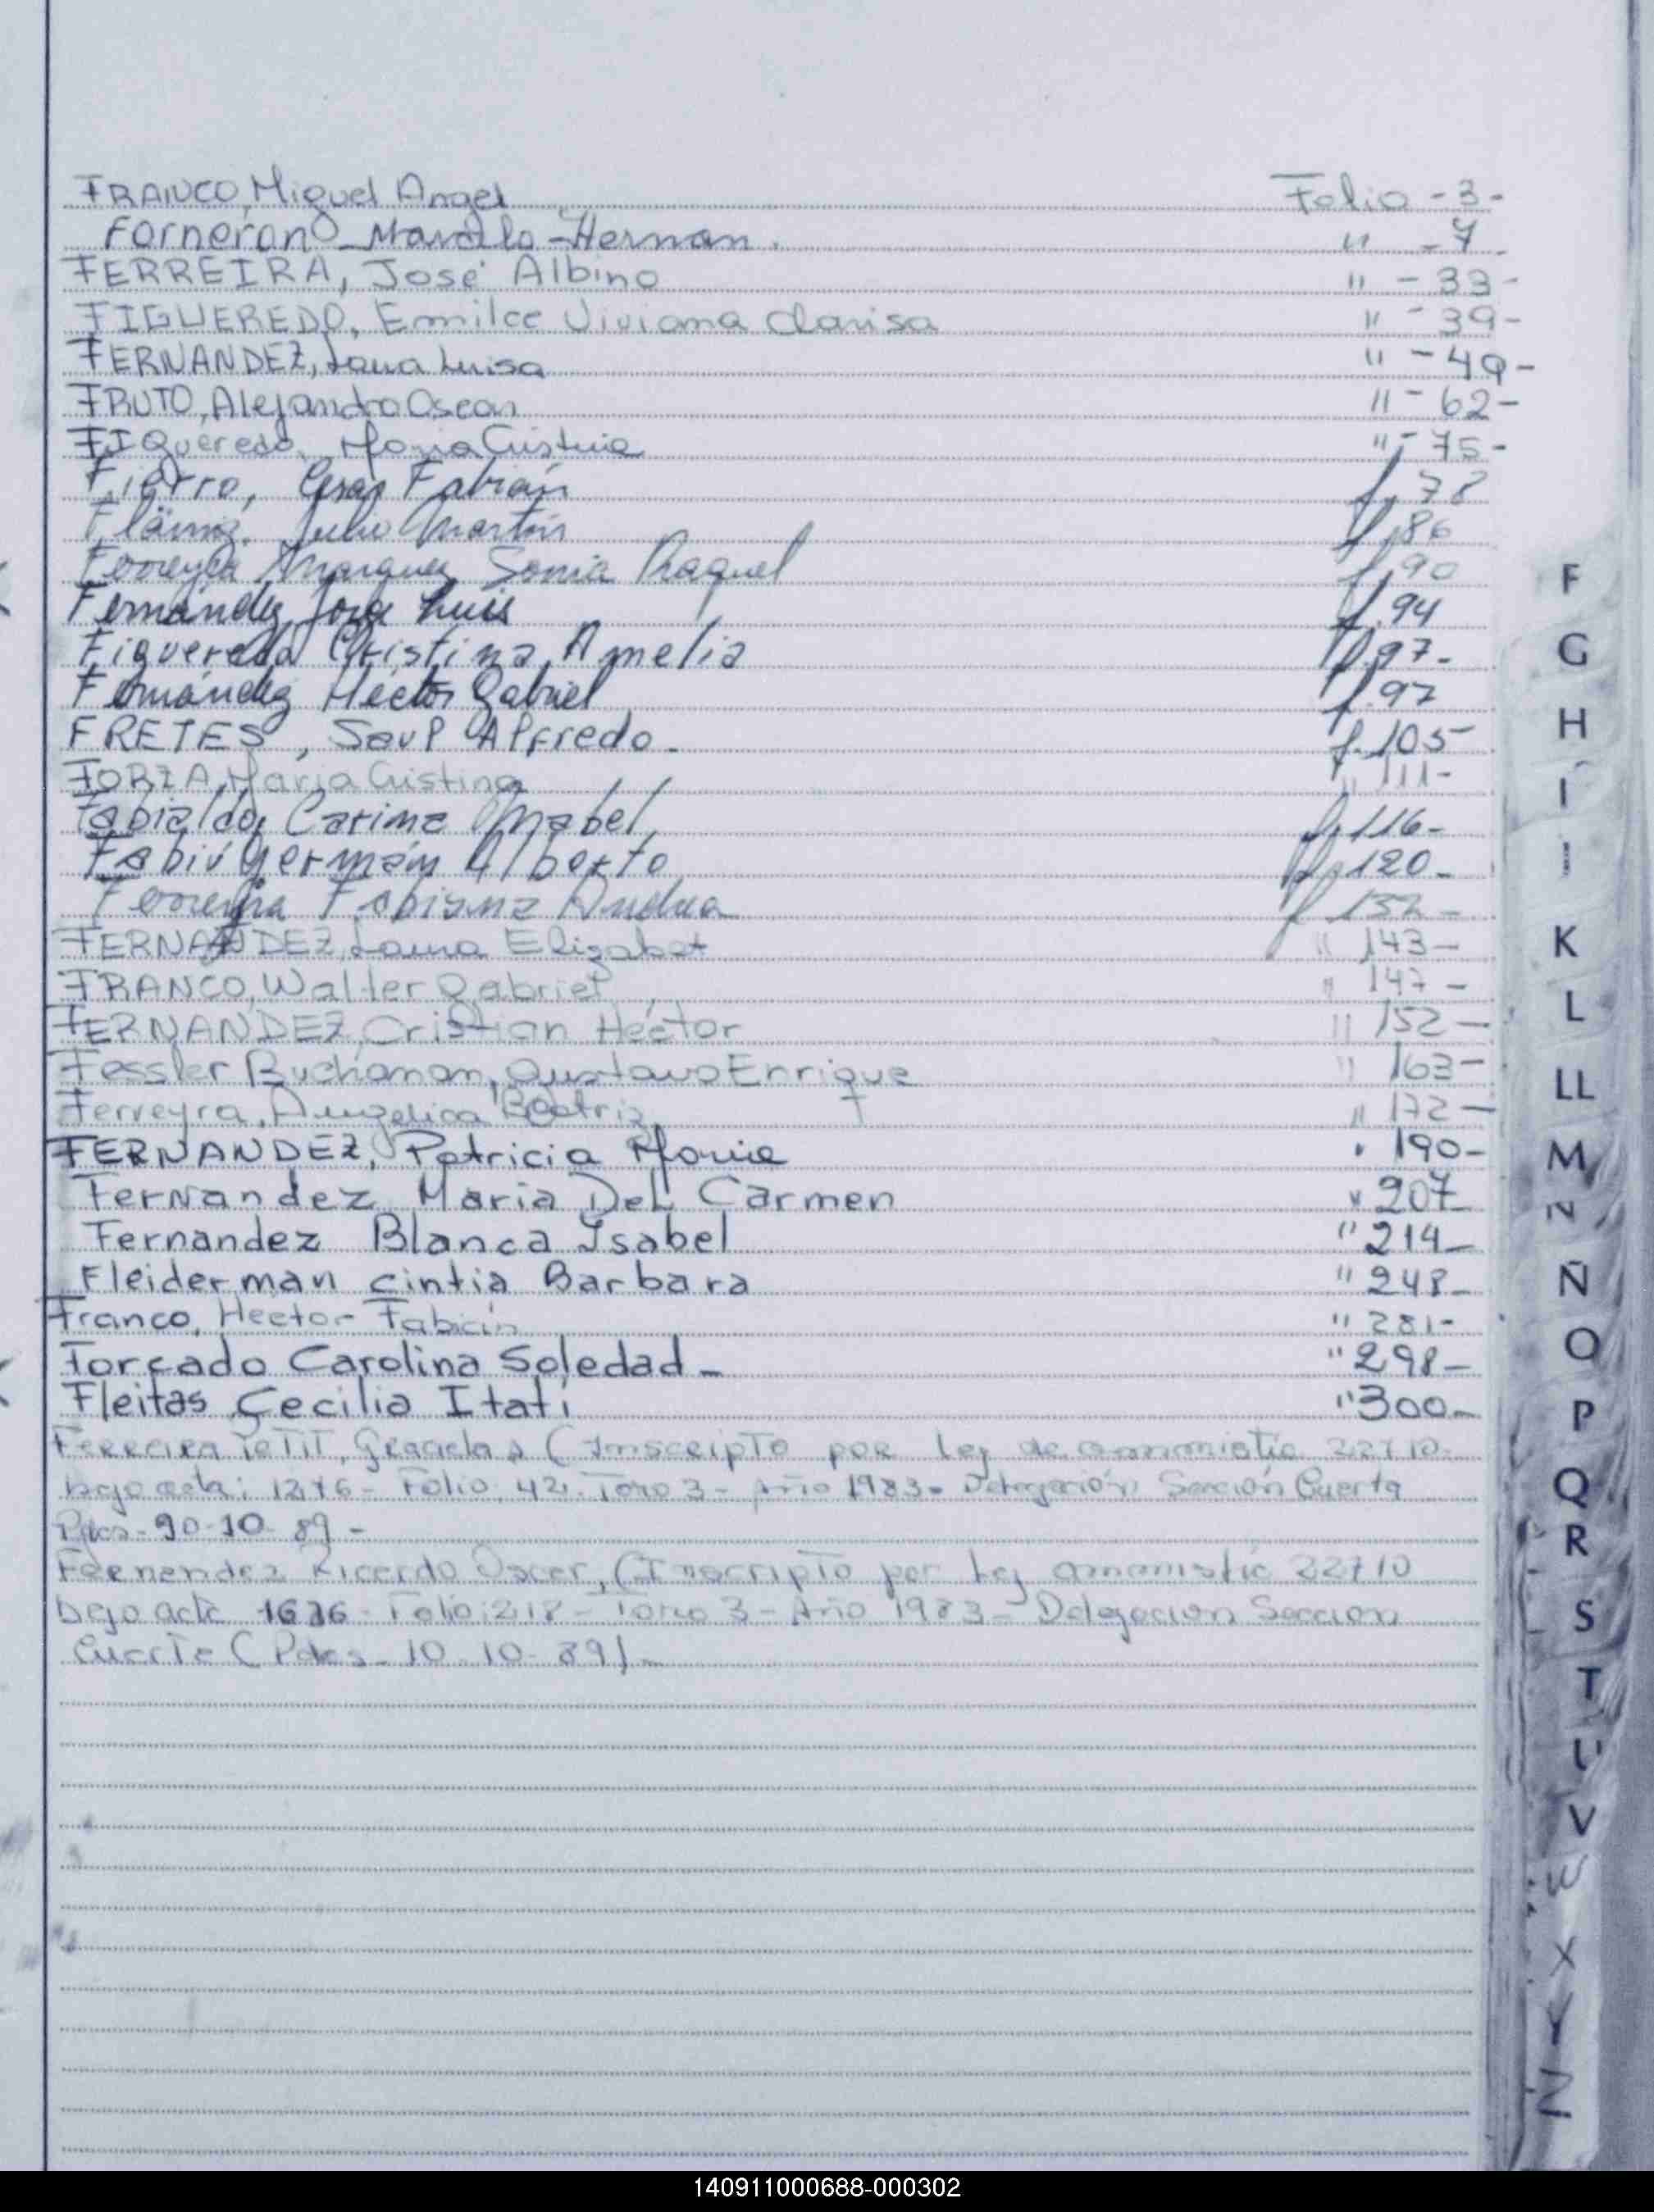 FRANCO, Miguel Angel Folio - 3 -
Forneron Marcelo - Hernan. " - 7
FERREIRA, José Albino " - 33 -
FIGUEREDO, Emilce Viviana Clarisa " - 39 -
FERNANDEZ, Laura Luisa " - 49 -
FRUTO, Alejandro Oscar " - 62 -
FIGueredo, Maria Cristina " - 75 -
Fierro, Cesar Fabián f. 78
Julio Martín f. 86
Ferreyra Marquez Sonia Raquel f. 90
Fernández Jorge Luis f. 94
Figueredo Cristina Amelia f. 97 -
Fernández Héctor Gabriel f. 97
FRETES, Saul Alfredo - f. 105
FORZA, Maria Cristina " 111 -
Fabialdo, Carina Mabel f. 116 -
Fabiv Germán Alberto f. 120 -
Ferreyra Fabiana Andrea f 132 -
FERNANDEZ, Laura Elizabet " 143 -
FRANCO, Walter Gabriel " 147 -
FERNANDEZ, Cristian Héctor " 152 -
Fessler Buchanan, Gustavo Enrique " 163 -
Ferreyra, Angelica Beatriz " 172 -
FERNANDEZ, Patricia Maria " 190 -
Fernandez Maria Del Carmen " 207
Fernandez Blanca Isabel " 214 -
Fleiderman Cintia Barbara " 248 -
Franco, Hector Fabián " 281 -
Forcado Carolina Soledad - " 298 -
Fleitas Cecilia Itatí " 300 -
Ferreira Petit, Graciela (Inscripto por Ley de amnistia 22710
bajo acta: 1276 - Folio 42 - Tomo 3 - Año 1983 - Delegación Sección Cuarta
Pdas - 90-10-89 -
Fernandez Ricardo Oscar, (Inscripto por Ley amnistia 22710
bajo acta 1636 - Folio: 218 - Tomo 3 - Año 1983 - Delegacion Seccion
Cuarta (Pdas - 10-10-89) -
F
G
H
I
J
K
L
LL
M
N
Ñ
O
P
Q
R
S
T
U
V
W
X
Y
Z
140911000688-000302